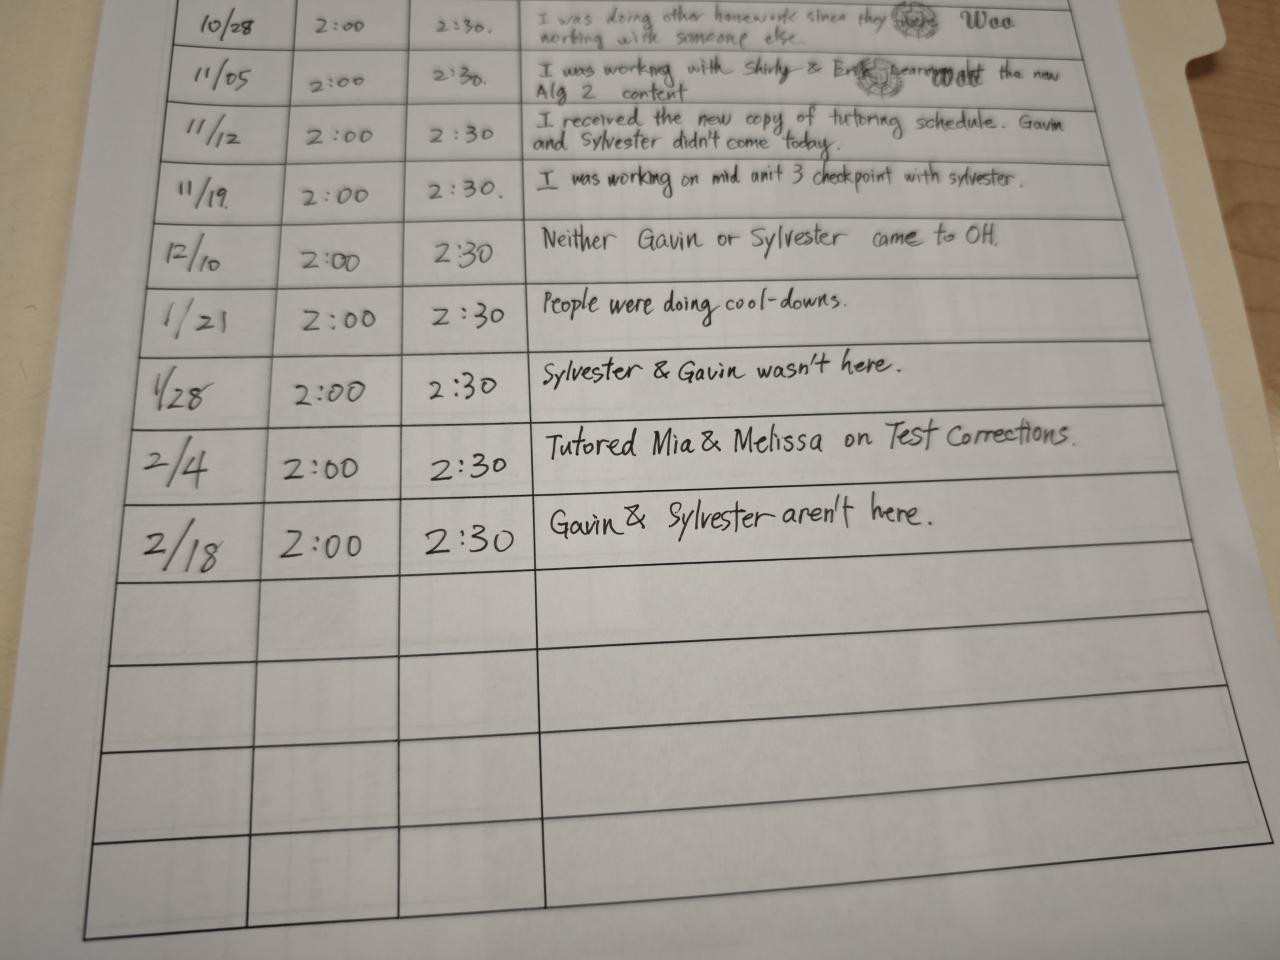 10/28 2:00 2:30. I was doing other homework since they were Woo
working with someone else.
11/05 2:00 2:30. I was working with Shirly & the new
Alg 2 content
11/12 2:00 2:30 I received the new copy of tutoring schedule. Gavin
and Sylvester didn't come today.
11/19. 2:00 2:30. I was working on mid unit 3 checkpoint with sylvester.
12/10 2:00 2:30 Neither Gavin or Sylvester came to OH.
1/21 2:00 2:30 People were doing cool-downs.
1/28 2:00 2:30 Sylvester & Gavin wasn't here.
2/4 2:00 2:30 Tutored Mia & Melissa on Test Corrections.
2/18 2:00 2:30 Gavin & Sylvester aren't here.